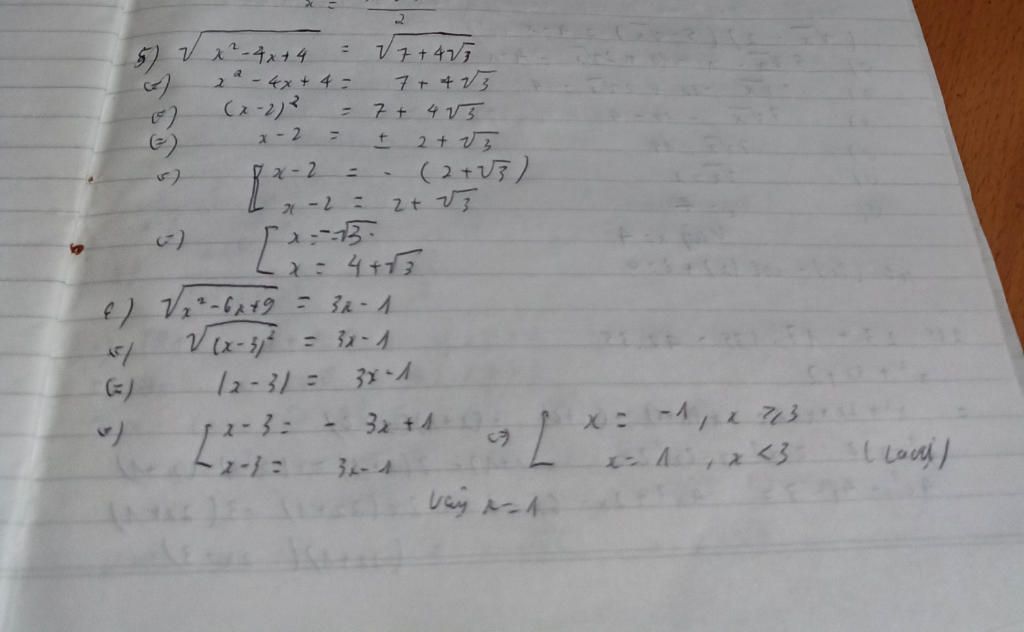 x = 2
5) √(x² - 4x + 4) = √(7 + 4√3)
(=) x² - 4x + 4 = 7 + 4√3
(=) (x-2)² = 7 + 4√3
(=) x - 2 = ± 2 + √3
(=) [ x - 2 = - (2 + √3)
x - 2 = 2 + √3
(=) [ x = -√3
x = 4 + √3
c) √(x² - 6x + 9) = 3x - 1
(=) √((x-3)²) = 3x - 1
(=) |x - 3| = 3x - 1
(=) [ x - 3 = - 3x + 1 (=) [ x = -1, x ⩾ 3
x - 3 = 3x - 1 x = 1, x < 3 (Loại)
Vậy x = 1